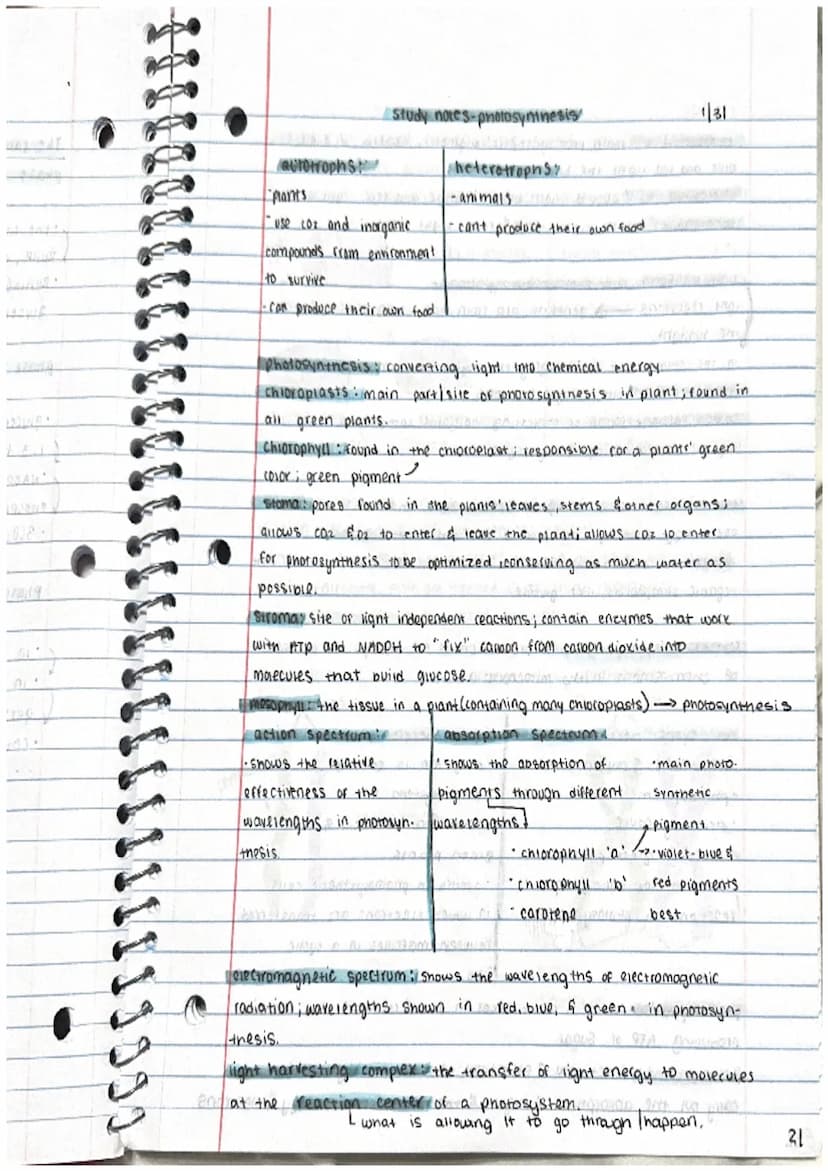 study notes-photosynthesis 1/31
autotrophs:
- plants
- use co2 and inorganic
compounds from environment
to survive
- can produce their own food
heterotrophs:
- animals
- can't produce their own food
photosynthesis: converting light into chemical energy
chloroplasts: main part/site of photosynthesis in plant; found in
all green plants.
chlorophyll: found in the chloroplast; responsible for a plants' green
color; green pigment
stoma: pores found in the plants' leaves, stems & other organs;
allows co2 & o2 to enter & leave the plant; allows co2 to enter
for photosynthesis to be optimized, conserving as much water as
possible.
stroma: site of light independent reactions; contain enzymes that work
with ATP and NADPH to "fix" carbon from carbon dioxide into
molecules that build glucose.
mesophyll: the tissue in a plant (containing many chloroplasts) → photosynthesis
action spectrum:
• shows the relative
effectiveness of the
wavelengths in photosyn-
thesis.
absorption spectrum:
• shows the absorption of
pigments through different
wavelengths
• chlorophyll 'a' →
• chlorophyll 'b'
• carotene
• main photo-
synthetic
pigment
• violet-blue &
red pigments
best
electromagnetic spectrum: shows the wavelengths of electromagnetic
radiation; wavelengths shown in red, blue, & green • in photosyn-
thesis.
light harvesting complex: the transfer of light energy to molecules
at the reaction center of a photosystem.
what is allowing it to go through/happen.
21